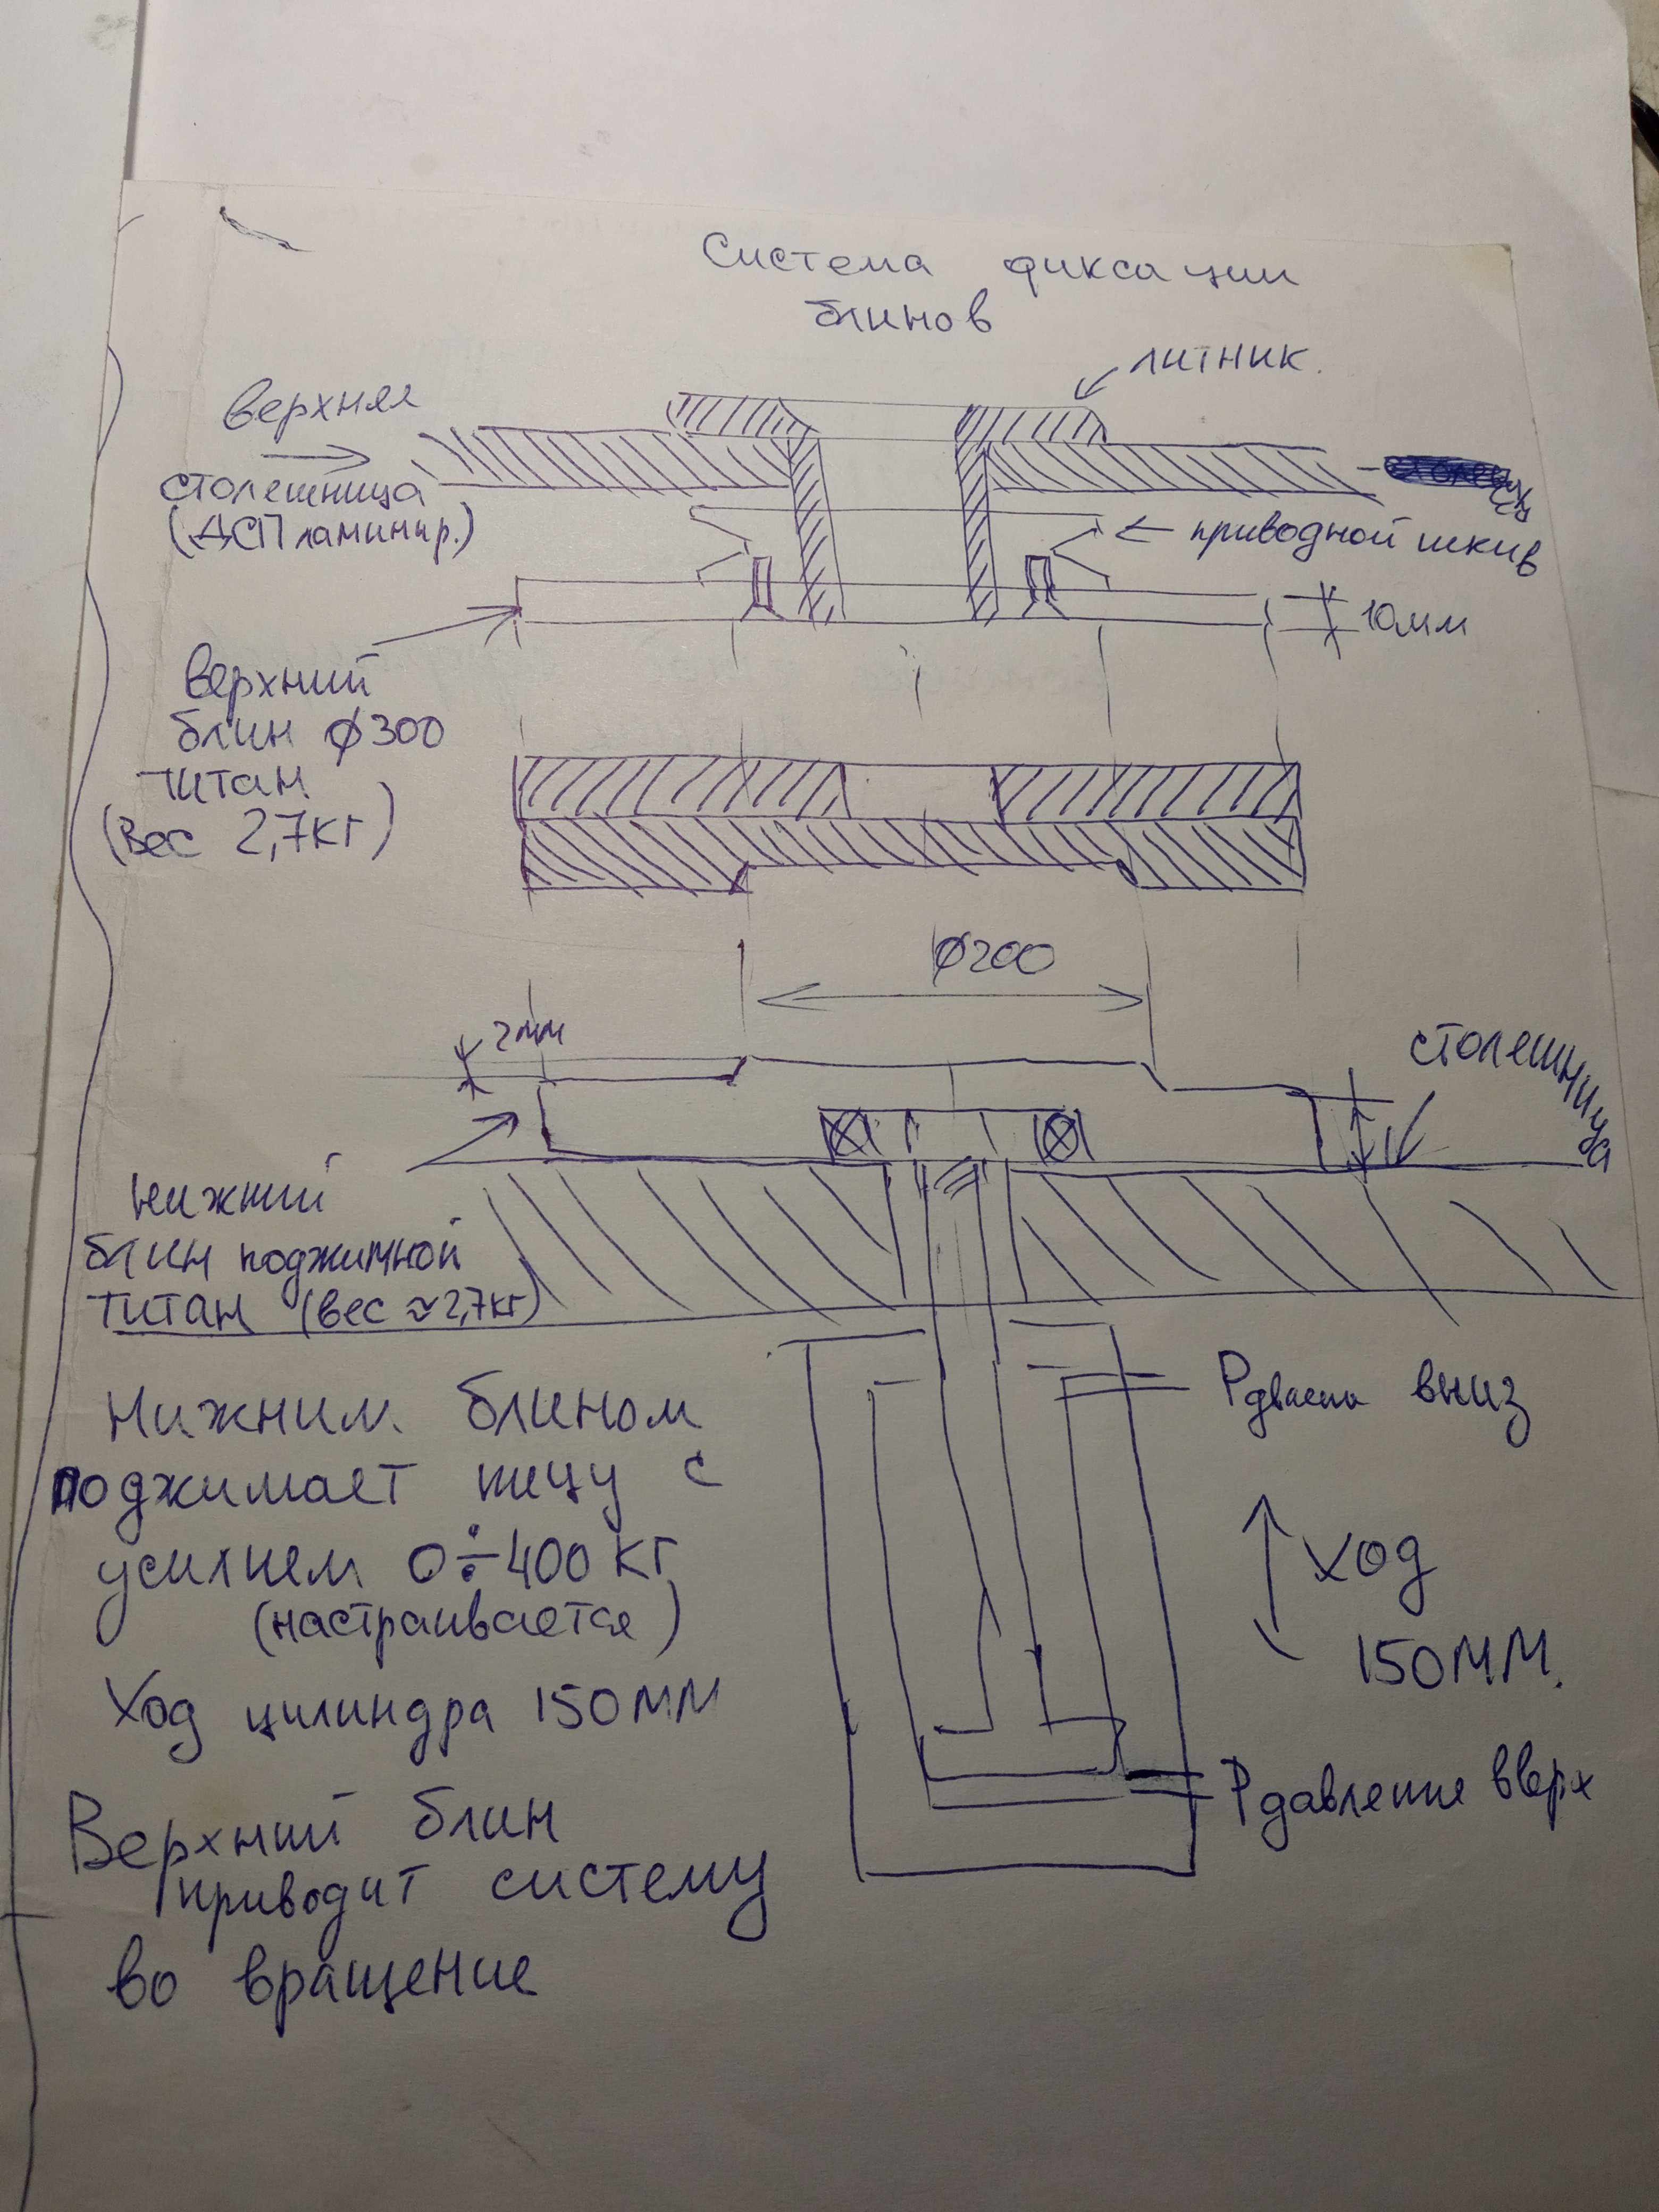 Система фиксации
блинов
литник.
верхняя
столешница
(ДСП ламинир.)
← приводной шкив
10мм
верхний
блин ϕ300
титан
(вес 2,7кг)
ϕ200
2мм
столешница
нижний
блин поджимной
титан (вес ≈2,7кг)
Нижним блином
поджимает пецу с
усилием 0÷400 кг
(настраивается)
Ход цилиндра 150мм
Верхний блин
приводит систему
во вращение
вниз
ход
150мм.
Р давление вверх